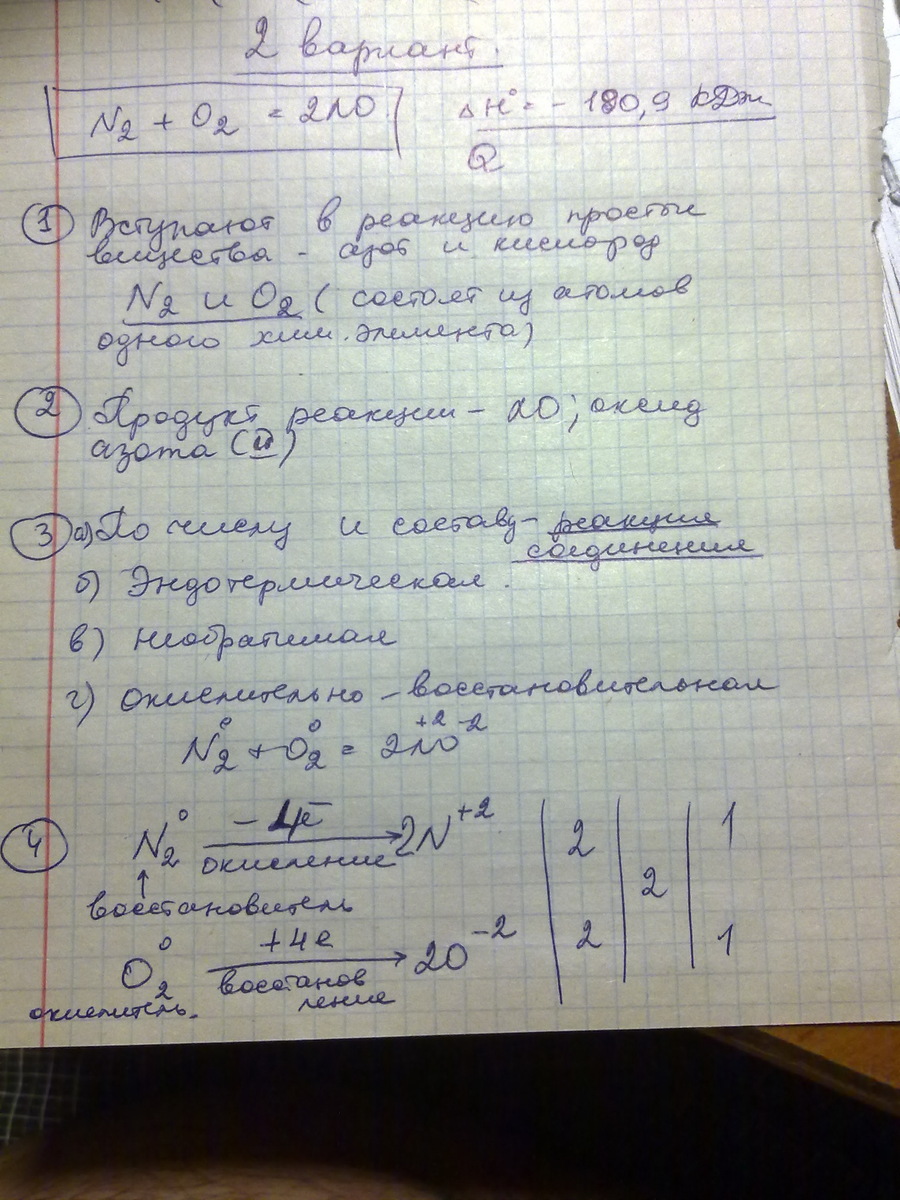 2 вариант.
N₂ + O₂ = 2NO ΔH° = - 180,9 кДж
Q
① Вступают в реакцию простые
вещества - азот и кислород
N₂ и O₂ (состоят из атомов
одного хим. элемента)
② Продукт реакции - NO; оксид
азота (II)
③ а) По числу и составу - реакция
соединения
б) Эндотермическая.
в) Необратимая
г) Окислительно-восстановительная
N₂⁰ + O₂⁰ = 2N⁺²O⁻²
④ N₂⁰ - 4ē → 2N⁺² | 2 | | 1
окисление
2
восстановитель
O₂⁰ +4e → 2O⁻² | 2 | | 1
восстанов
ление
окислитель.